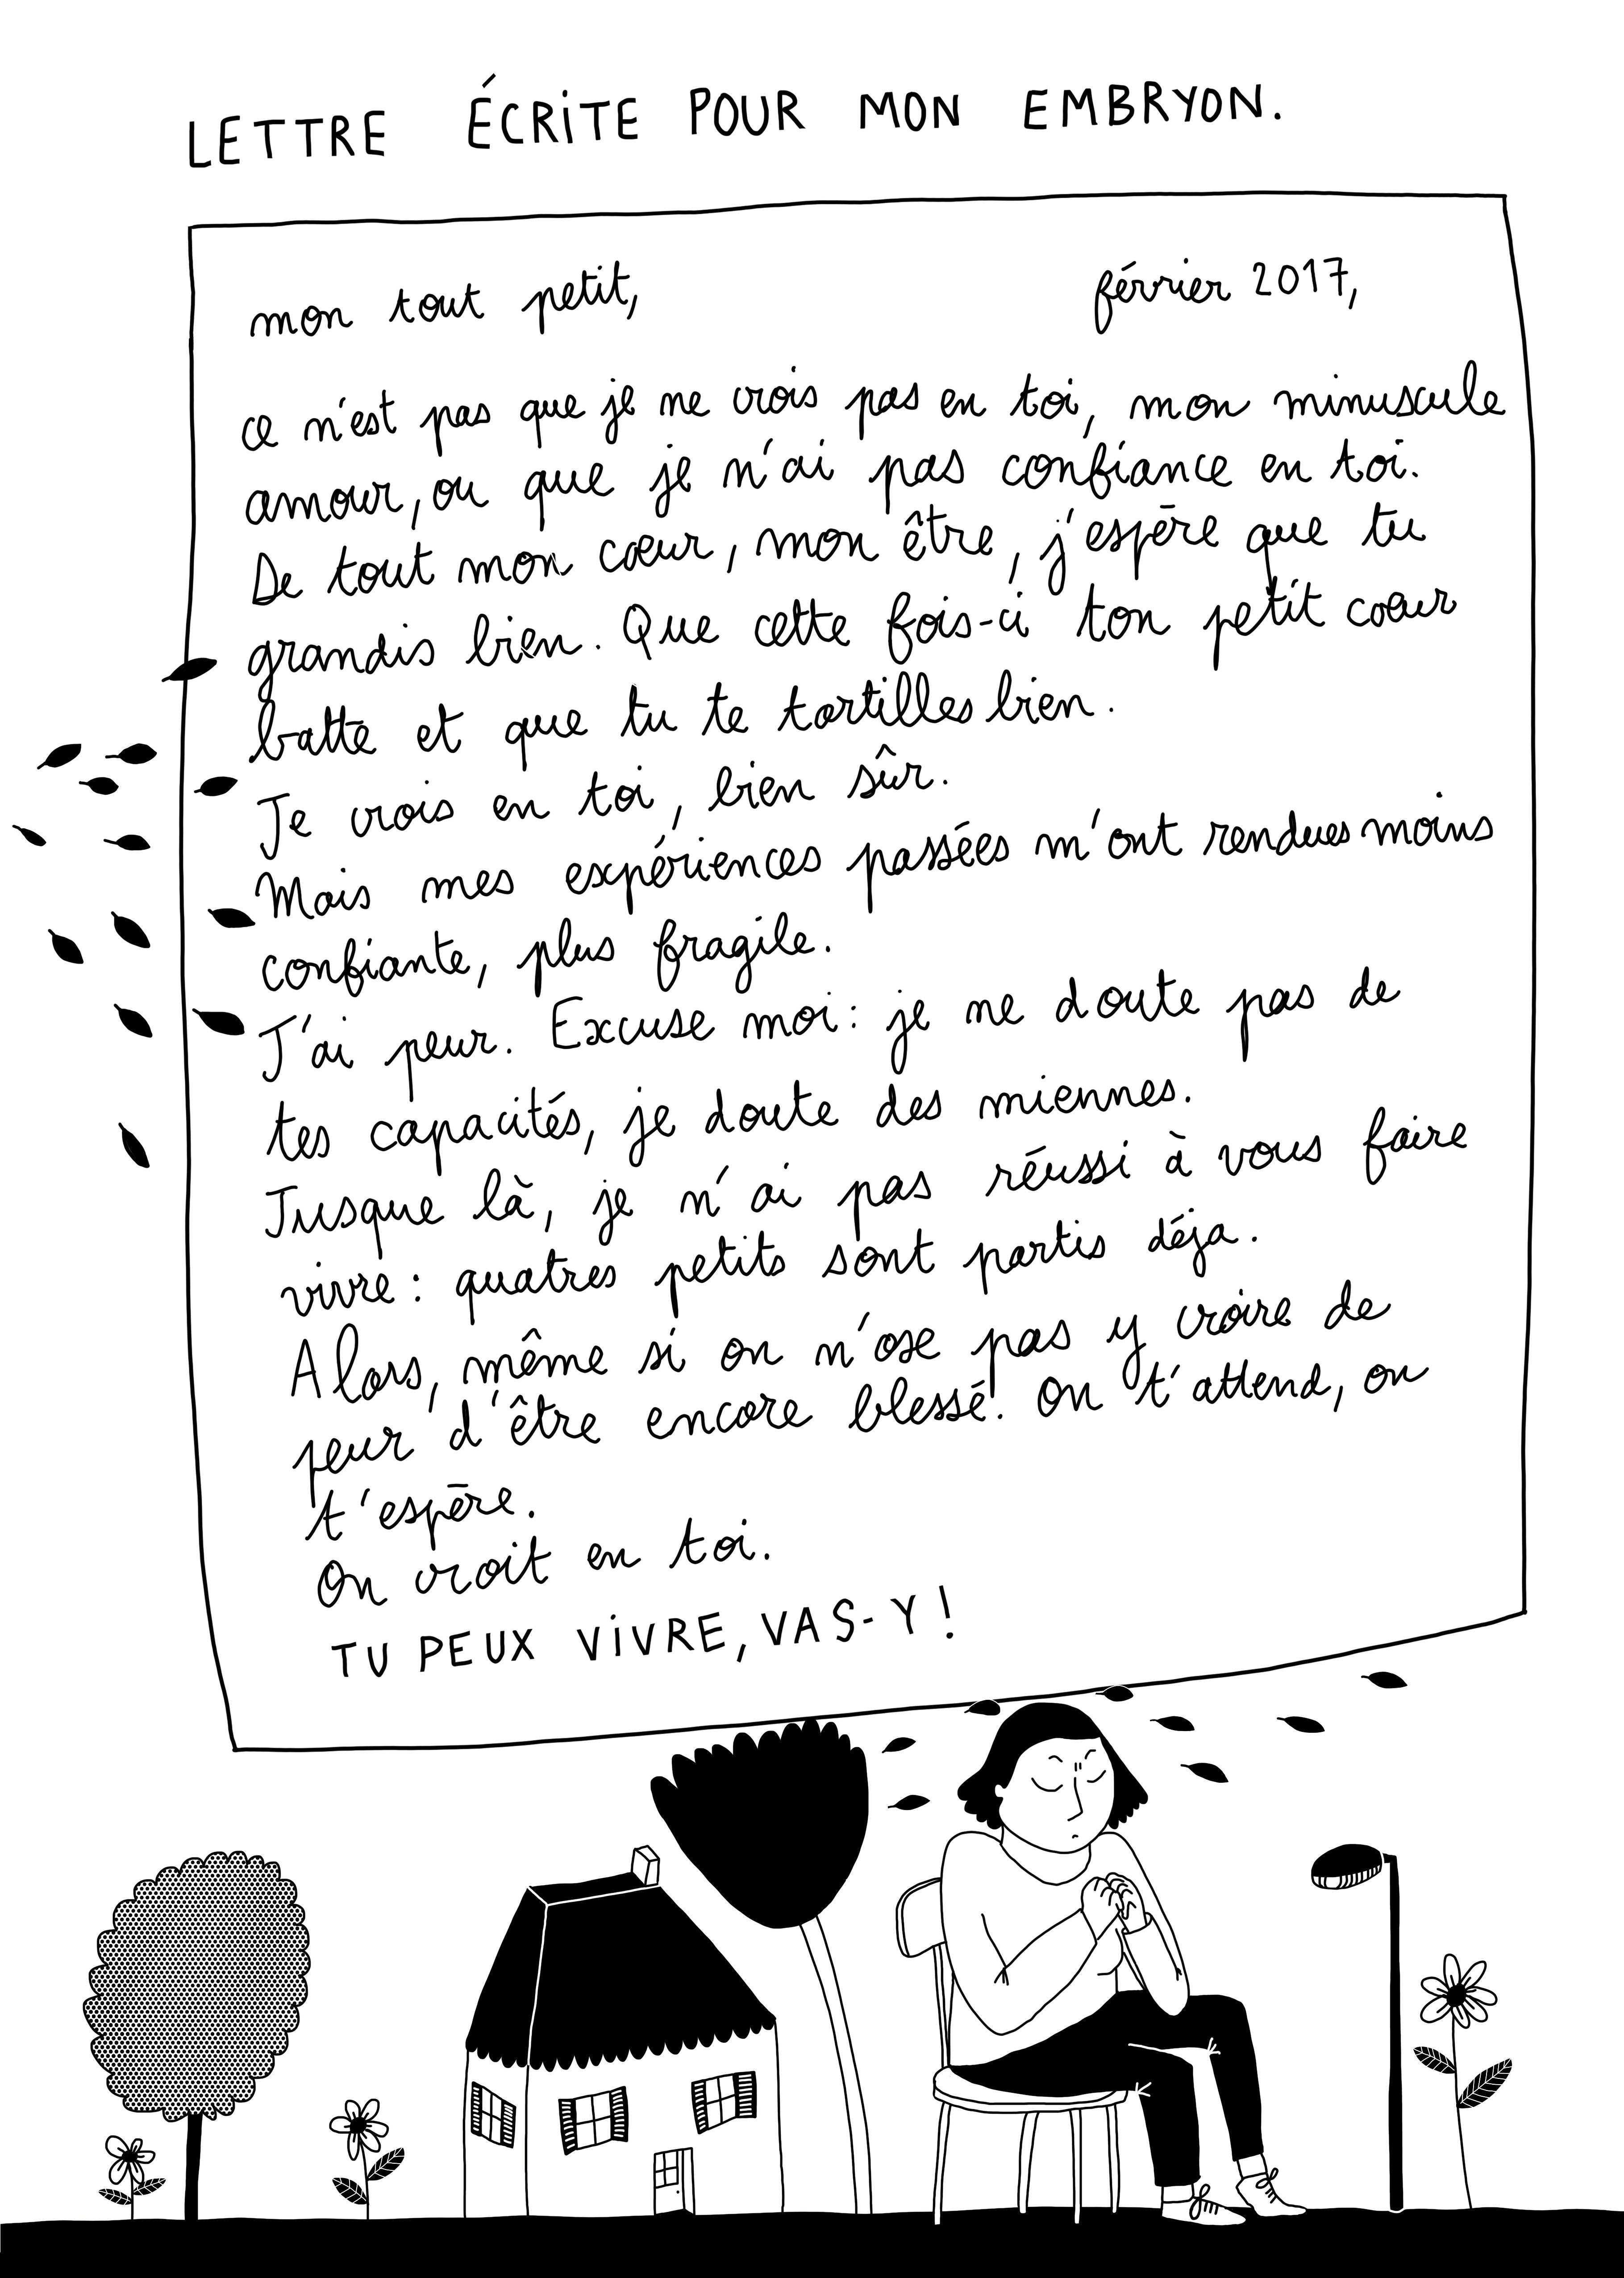 LETTRE ÉCRiTE POUR MON EMBRYON.
mon tout petit, février 2017,
ce n'est pas que je ne crois pas en toi, mon minuscule
amour, ou que je n'ai pas confiance en toi.
De tout mon cœur, mon être, j'espère que tu
grandis bien. Que cette fois-ci ton petit cœur
batte et que tu te tortilles bien.
Je crois en toi, bien sûr.
Mais mes expériences passées m'ont rendues moins
confiante, plus fragile.
J'ai peur. Excuse moi : je ne doute pas de
tes capacités, je doute des miennes.
Jusque là, je n'ai pas réussi à vous faire
vivre : quatres petits sont partis déja.
Alors, même si on n'ose pas y croire de
peur d'être encore blessé. On t'attend, on
t'espère.
On croit en toi.
TU PEUX ViVRE, VAS-Y !